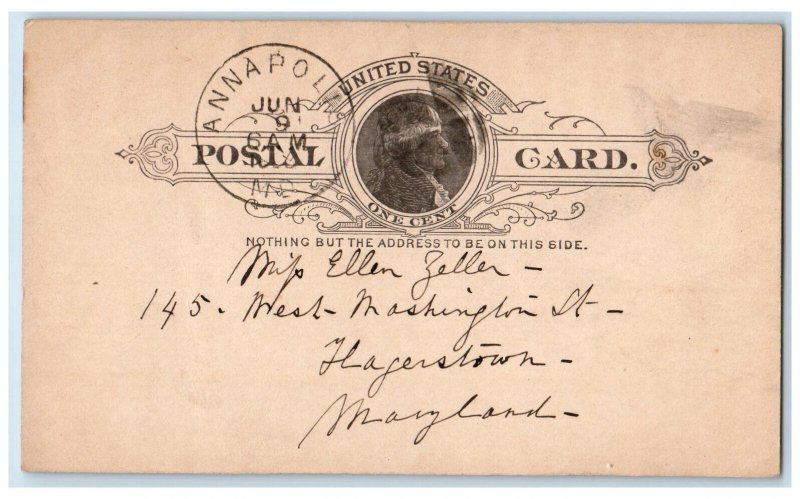 ANNAPOL
JUN
9
6 AM
MD
UNITED STATES
POSTAL CARD.
ONE CENT
NOTHING BUT THE ADDRESS TO BE ON THIS SIDE.
Miss Ellen Zeller -
145. West Washington St -
Hagerstown -
Maryland -